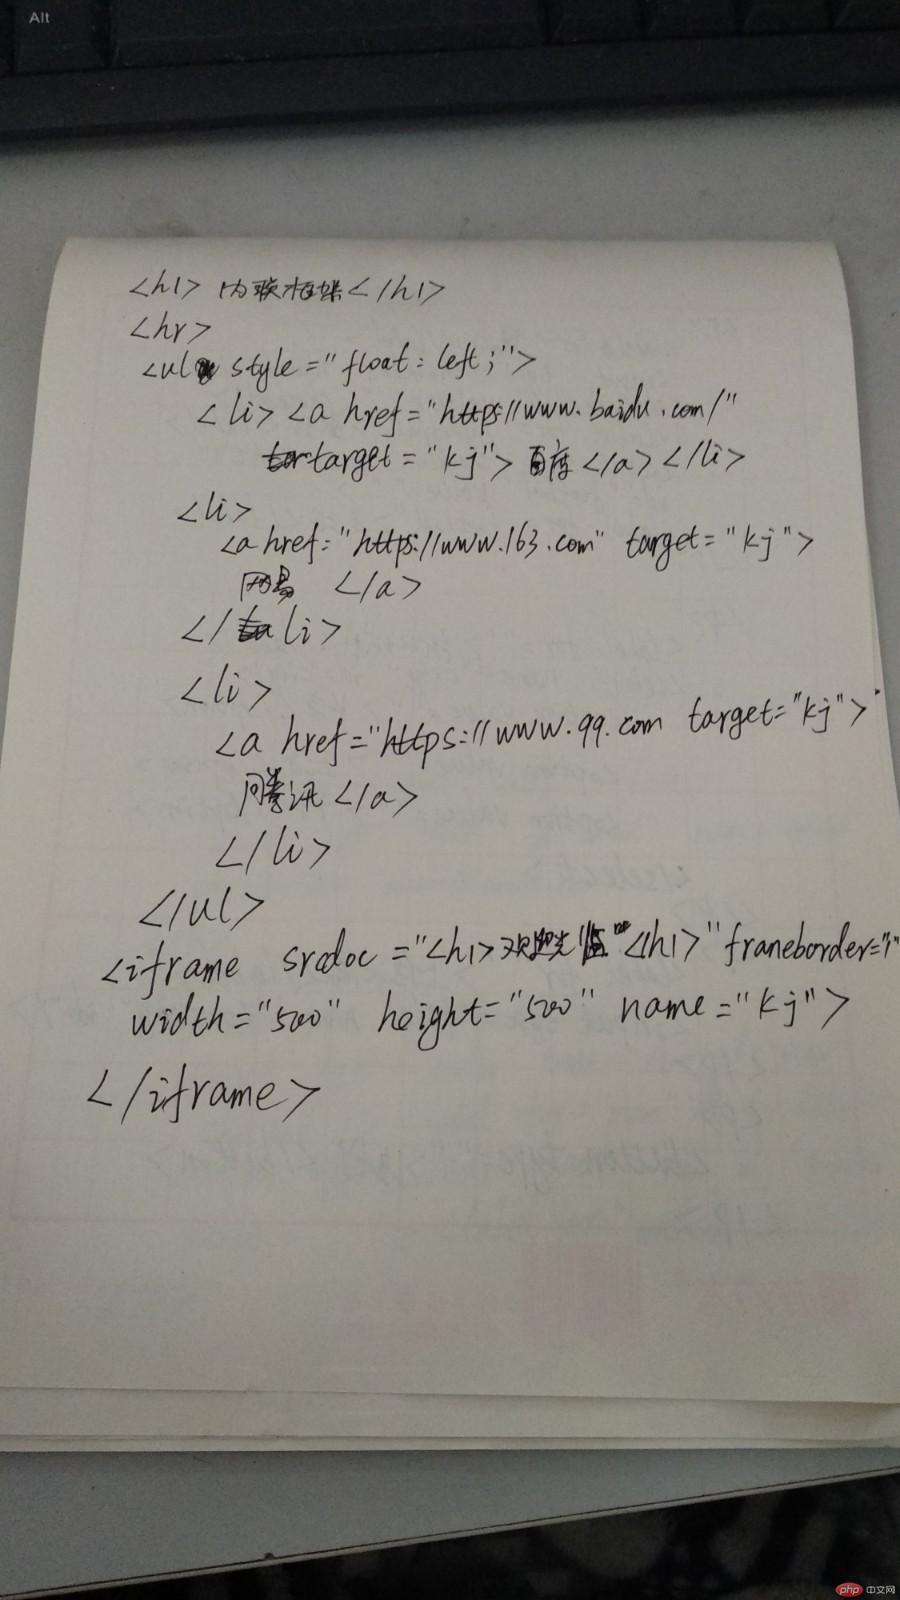 Alt
<h1> 内联框架</h1>
<hr>
<ul style="float:left;">
<li> <a href="https://www.baidu.com/"
target="kj"> 百度</a></li>
<li>
<a href="https://www.163.com" target="kj">
网易 </a>
</li>
<li>
<a href="https://www.qq.com target="kj">
腾讯</a>
</li>
</ul>
<iframe srcdoc="<h1> </h1>" franeborder="1"
width="500" height="500" name="kj">
</iframe>
php 中文网